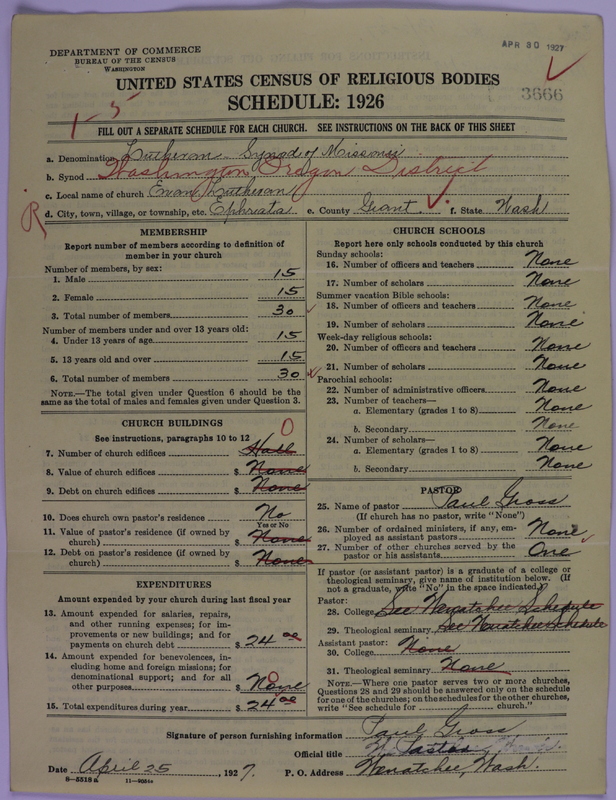 DEPARTMENT OF COMMERCE
BUREAU OF THE CENSUS
WASHINGTON
APR 30 1927
UNITED STATES CENSUS OF RELIGIOUS BODIES
SCHEDULE: 1926
3666
1-5
FILL OUT A SEPARATE SCHEDULE FOR EACH CHURCH. SEE INSTRUCTIONS ON THE BACK OF THIS SHEET
a. Denomination Lutheran Synod of Missouri
b. Synod Washington Oregon District
c. Local name of church Evan Lutheran
R
d. City, town, village, or township, etc. Ephrata e. County Grant f. State Wash
MEMBERSHIP
Report number of members according to definition of
member in your church
Number of members, by sex:
1. Male 15
2. Female 15
3. Total number of members 30
Number of members under and over 13 years old:
4. Under 13 years of age 15
5. 13 years old and over 15
6. Total number of members 30
NOTE.—The total given under Question 6 should be
same as the total of males and females given under Question 3.
CHURCH BUILDINGS
See instructions, paragraphs 10 to 12
0
7. Number of church edifices Hall
8. Value of church edifices $ None
9. Debt on church edifices $ None
10. Does church own pastor's residence No
Yes or No
11. Value of pastor's residence (if owned by
church) $ None
12. Debt on pastor's residence (if owned by
church) $ None
EXPENDITURES
Amount expended by your church during last fiscal year
13. Amount expended for salaries, repairs,
and other running expenses; for im-
provements or new buildings; and for
payments on church debt $ 24 00
14. Amount expended for benevolences, in-
cluding home and foreign missions; for
denominational support; and for all
other purposes $ None 0
15. Total expenditures during year $ 24 00
CHURCH SCHOOLS
Report here only schools conducted by this church
Sunday schools:
16. Number of officers and teachers None
17. Number of scholars None
Summer vacation Bible schools:
18. Number of officers and teachers None
19. Number of scholars None
Week-day religious schools:
20. Number of officers and teachers None
21. Number of scholars None
Parochial schools:
22. Number of administrative officers None
23. Number of teachers—
a. Elementary (grades 1 to 8) None
b. Secondary None
24. Number of scholars—
a. Elementary (grades 1 to 8) None
b. Secondary None
PASTOR
25. Name of pastor Paul Gross
(If church has no pastor, write "None")
26. Number of ordained ministers, if any, em-
ployed as assistant pastors None
27. Number of other churches served by the
pastor or his assistants One
If pastor (or assistant pastor) is a graduate of a college or
theological seminary, give name of institution below. (If
not a graduate, write "No" in the space indicated.)
Pastor:
28. College See Wenatchee Schedule
29. Theological seminary See Wenatchee Schedule
Assistant pastor:
30. College None
31. Theological seminary None
NOTE.—Where one pastor serves two or more churches,
Questions 28 and 29 should be answered only on the schedule
for one of the churches; on the schedules for the other churches,
write "See schedule for church."
Signature of person furnishing information Paul Gross
Official title Pastor
Date April 25, 1927. P. O. Address Wenatchee, Wash.
8—5518a 11—9051